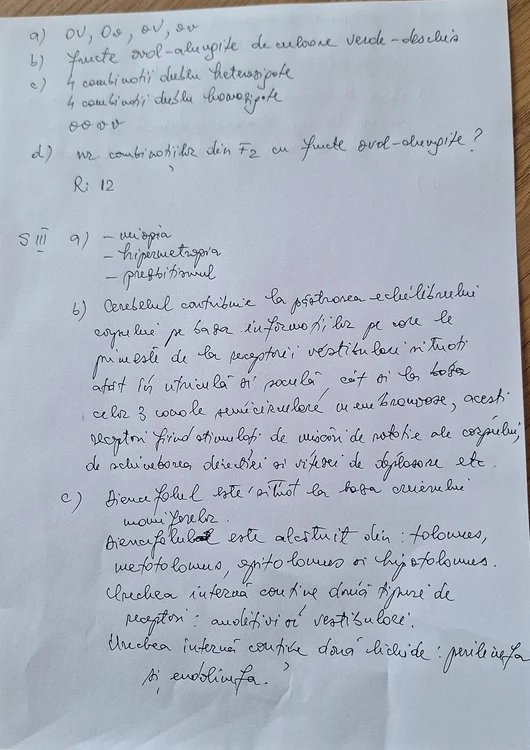 a) OV, Ov, oV, ov
b) fructe oval-alungite de culoare verde-deschis
c) 4 combinații dublu heterozigote
4 combinații dublu homozigote
oovv
d) nr combinațiilor din F2 cu fructe oval-alungite?
R: 12
S III a) - miopia
- hipermetropia
- presbitismul
b) Cerebelul contribuie la păstrarea echilibrului
corpului pe baza informațiilor pe care le
primește de la receptorii vestibulari situați
atât în utriculă și saculă, cât și la baza
celor 3 canale semicirculare membranoase, acești
receptori fiind stimulați de mișcări de rotație ale corpului,
de schimbarea direcției și vitezei de deplasare etc.
c) Diencefalul este situat la baza creierului
mamiferelor.
Diencefalul este alcătuit din: talamus,
metatalamus, epitalamus și hipotalamus.
Urechea internă conține două tipuri de
receptori: auditivi și vestibulari.
Urechea internă conține două lichide: perilimfa
și endolimfa.